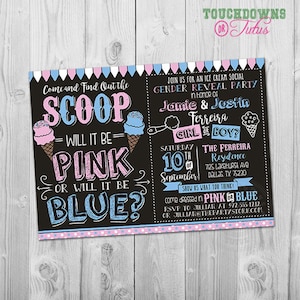 TOUCHDOWNS
OR
Tutus
Come and Find Out the
SCOOP
WILL IT BE
PINK
OR WILL IT BE
BLUE?
JOIN US FOR AN ICE CREAM SOCIAL
GENDER REVEAL PARTY
IN HONOR OF
Jamie & Justin
Ferreira
GIRL OR BOY?
SATURDAY
10TH
September
THE FERREIRA
Residence
SHOW US WHAT YOU THINK!
COME DRESSED IN PINK OR BLUE
RSVP TO JILLIAN @